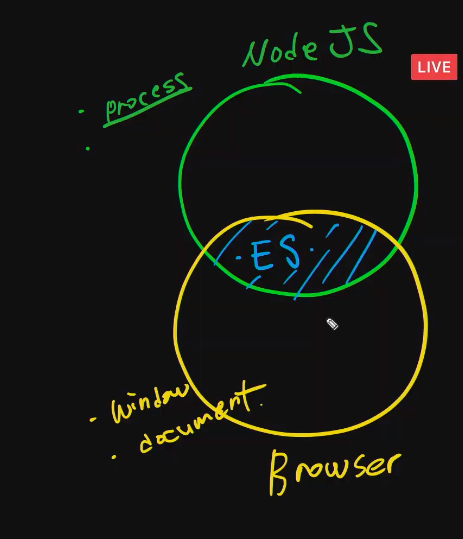 NodeJS
LIVE
· process
·
· ES ·
· window
· document.
Browser